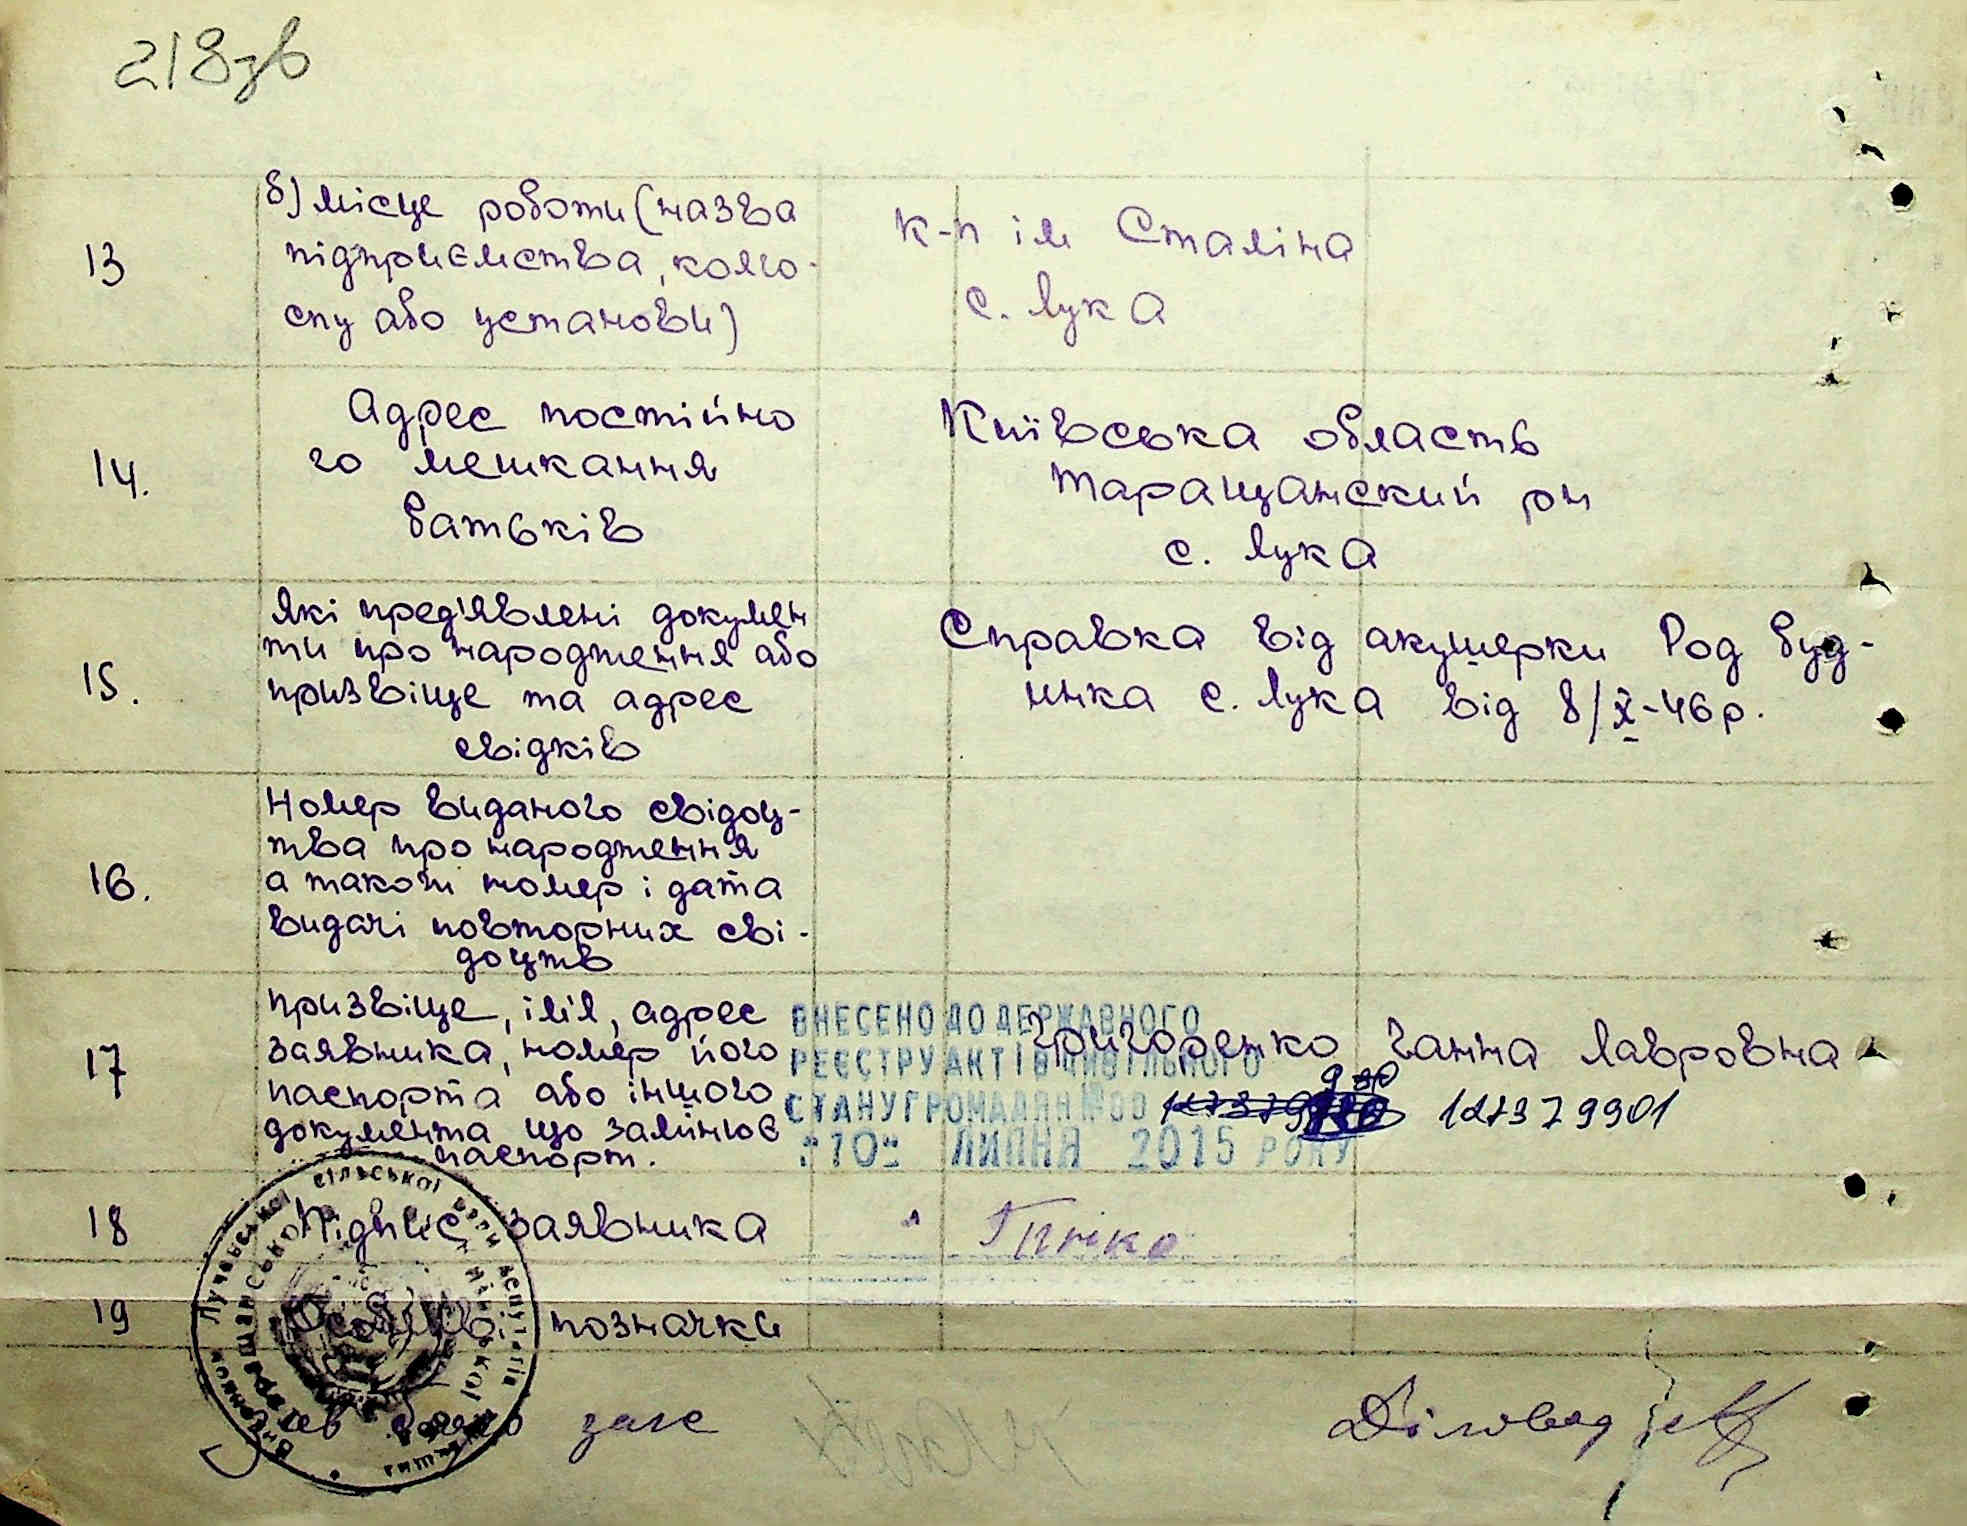 218зв
13
б) місце роботи (назва
підприємства, колго-
спу або установи)
к-п ім Сталіна
с. Лука
14.
Адрес постійно
го мешкання
батьків
Київська область
Таращанский рн
с. Лука
15.
Які пред'явлені докумен
ти про народження або
призвіще та адрес
свідків
Справка від акушерки Род буд-
инка с. Лука від 8/X-46р.
16.
Номер виданого свідоц-
тва про народження
а також номер і дата
видачі повторних сві-
доцтв
17
призвіще, ім'я, адрес
заявника, номер його
паспорта або іншого
документа що замінює
паспорт.
Григоренко Ганна Лавровна
1273 79901
ВНЕСЕНО ДО ДЕРЖАВНОГО
РЕЄСТРУ АКТІВ ЦИВІЛЬНОГО
СТАНУ ГРОМАДЯН №00
"10" ЛИПНЯ 2015 РОКУ
18
Підпис заявника
19
Особливі позначки
заг
Діловод